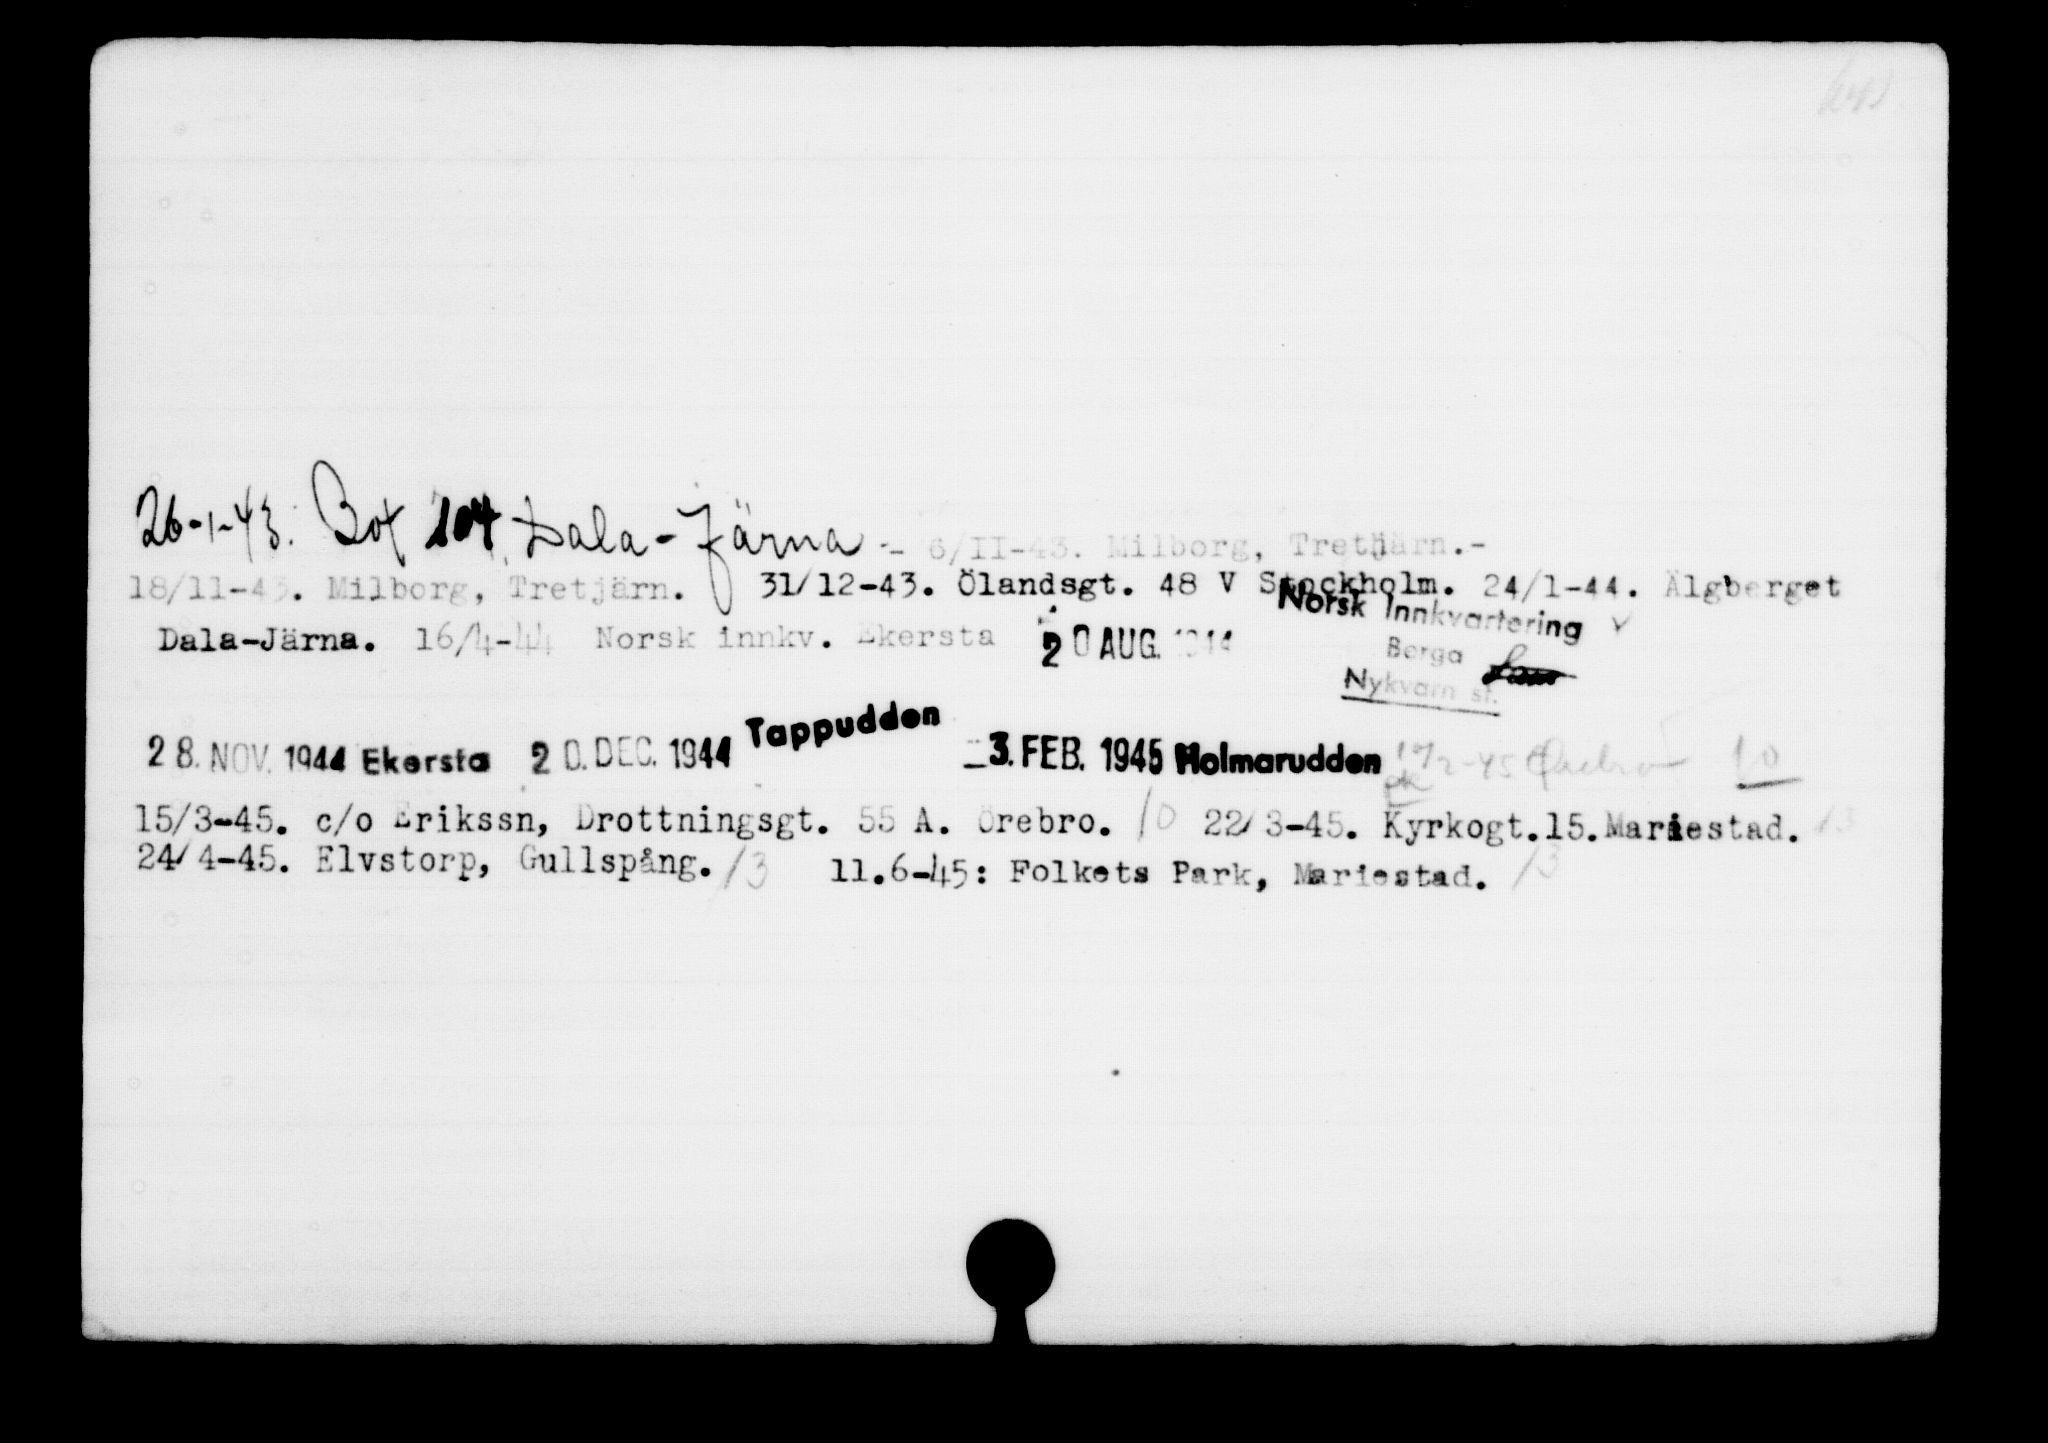 26-1-43. Box 104, Dala-Järna - 6/II-43. Milborg, Tretjärn.-
18/11-43. Milborg, Tretjärn. 31/12-43. Ölandsgt. 48 V Stockholm. 24/1-44. Älgberget
Norsk Innkvartering
Dala-Järna. 16/4-44 Norsk innkv. Ekersta 20 AUG. 1944
Berga
Nykvarn st.
28. NOV. 1944 Ekersta 20. DEC. 1944 Tappudden -3. FEB. 1945 Holmarudden 17/2-45 Örebro 10
15/3-45. c/o Erikssn, Drottningsgt. 55 A. Örebro. 10 22/3-45. Kyrkogt.15. Mariestad. 13
24/4-45. Elvstorp, Gullspång. 13 11.6-45: Folkets Park, Mariestad. 13